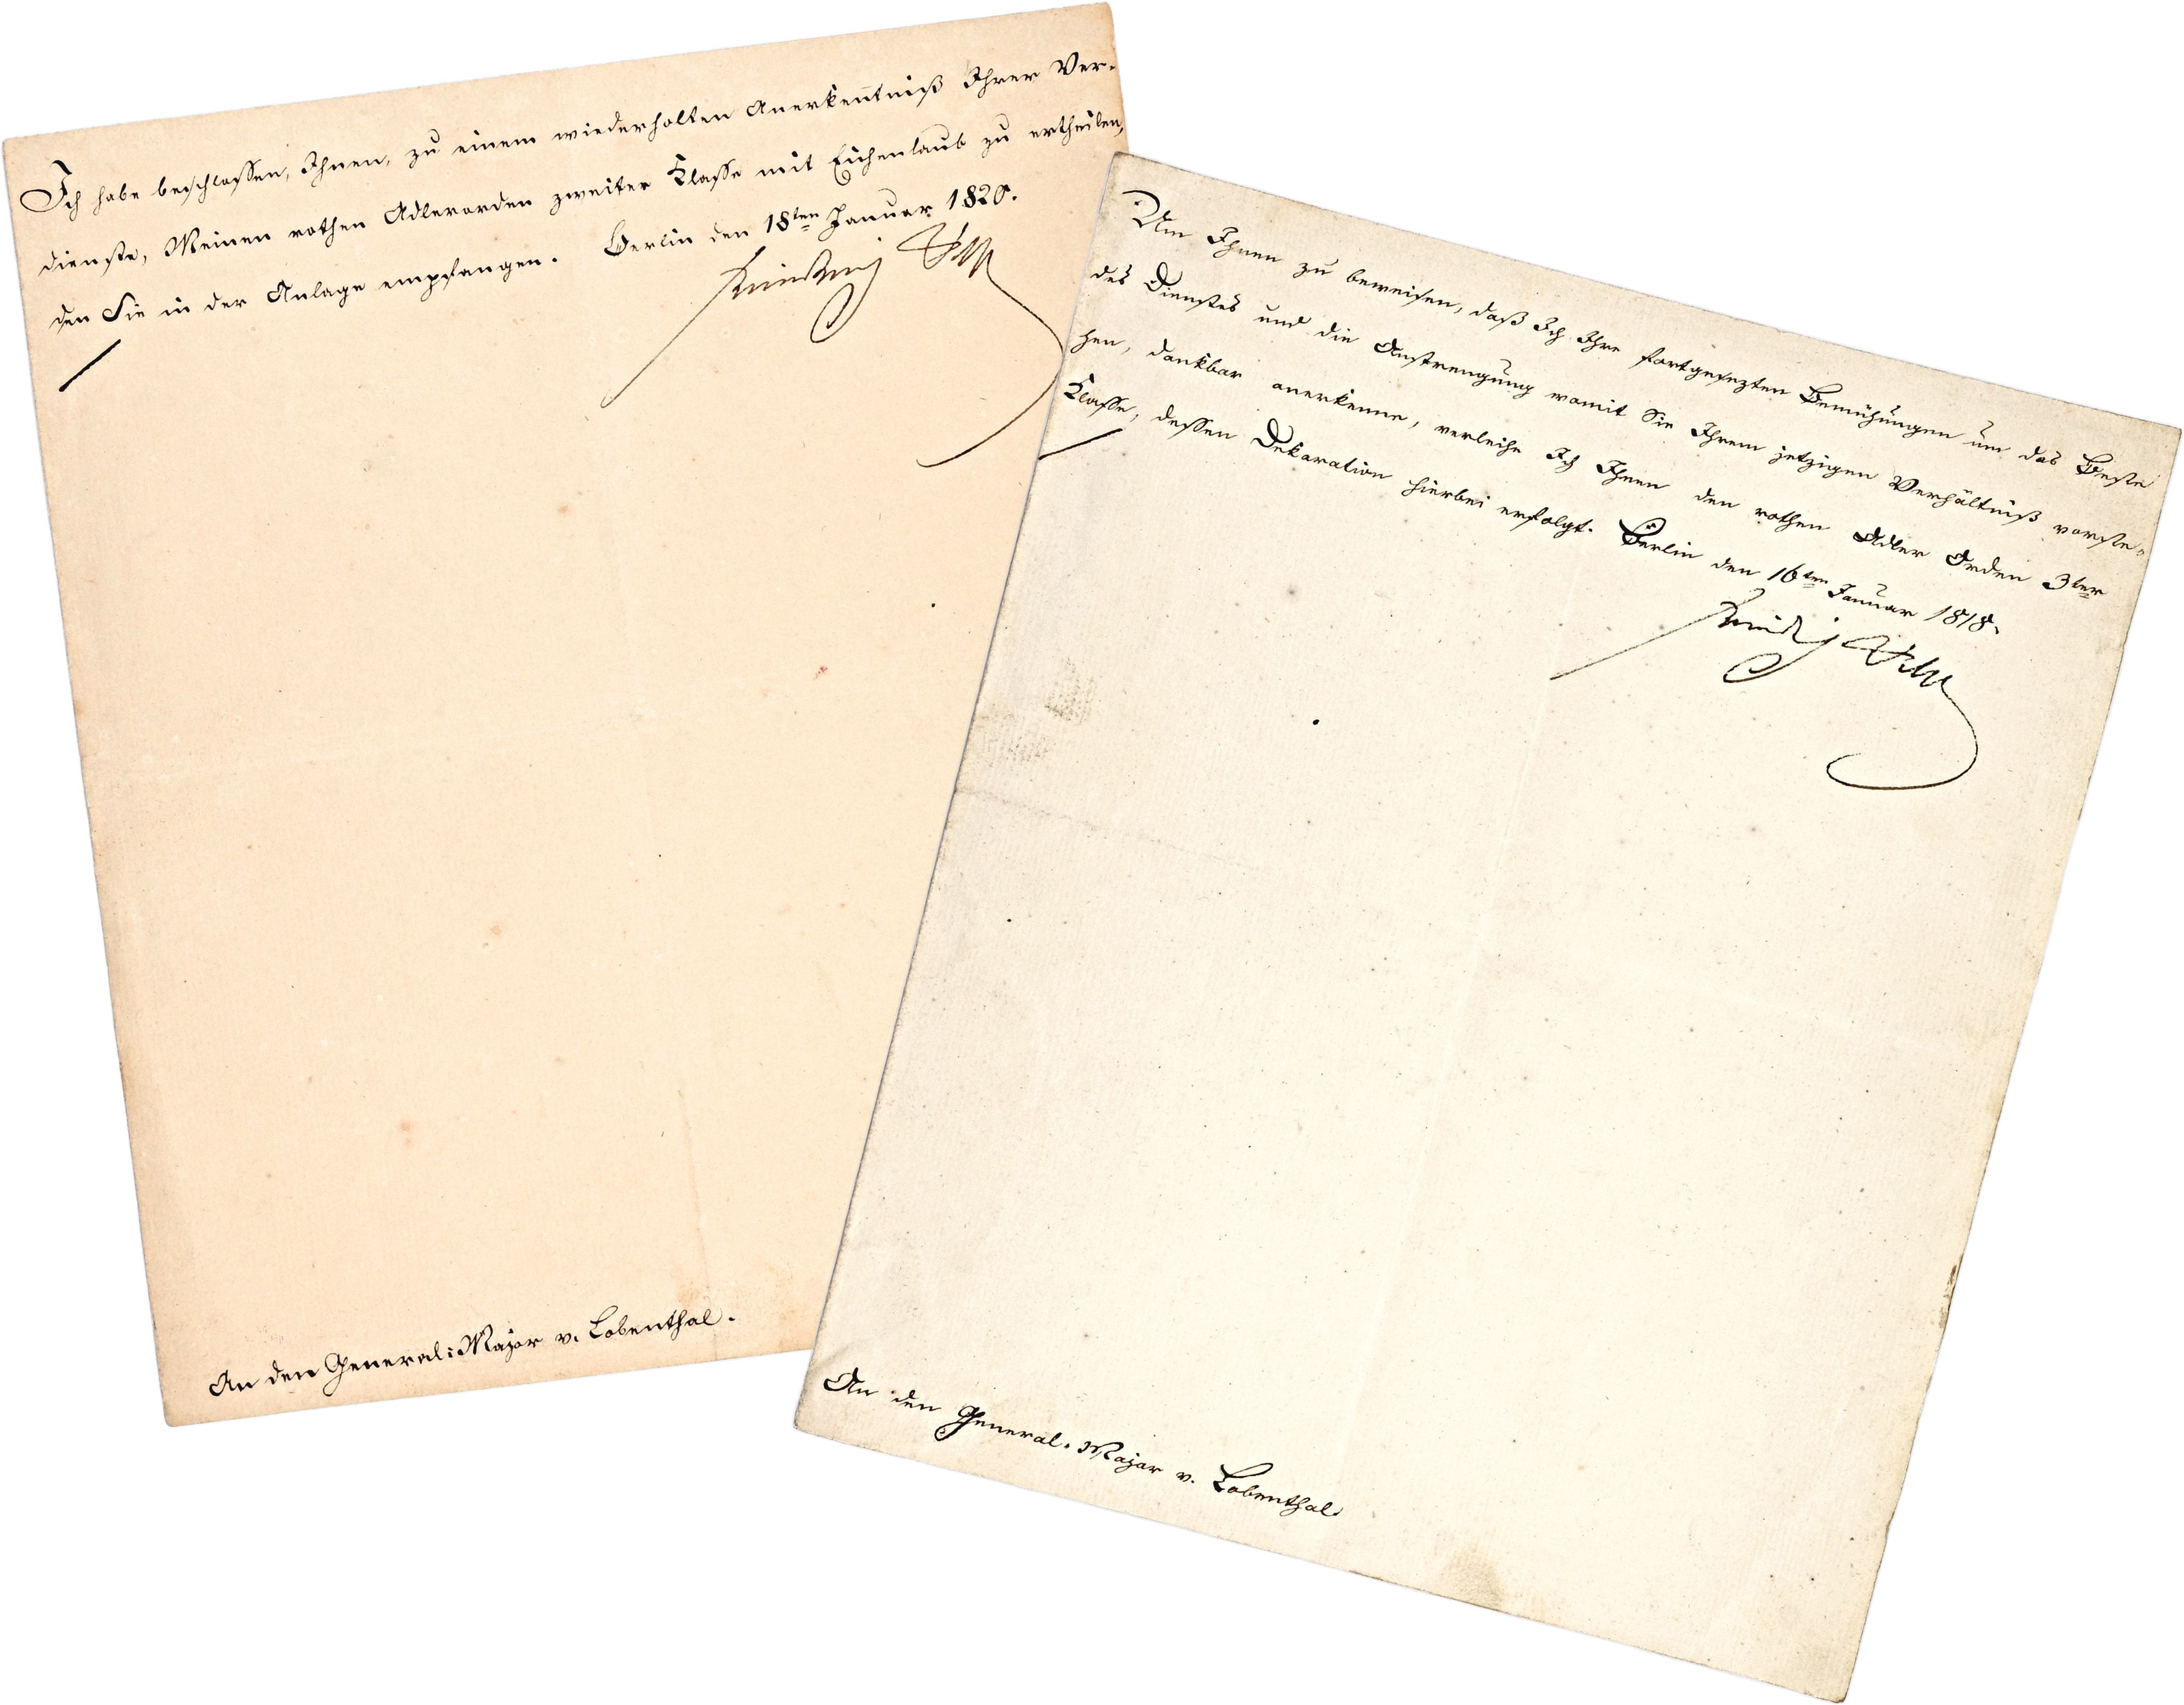 Ich habe beschlossen, Ihnen, zu einem wiederholten Anerkenntniß Ihrer Ver-
dienste, Meinen rothen Adlerorden zweiter Klasse mit Eichenlaub zu ertheilen,
den Sie in der Anlage empfangen. Berlin den 18ten Januar 1820.
Friedrich Wilh
An den General-Major v. Lobenthal.
Um Ihnen zu beweisen, daß Ich Ihre fortgesezten Bemühungen um das Beste
des Dienstes und die Anstrengung womit Sie Ihrem jetzigen Verhältniß vorste-
hen, dankbar anerkenne, verleihe Ich Ihnen den rothen Adler Orden 3ter
Klasse, dessen Dekoration hierbei erfolgt. Berlin den 16ten Januar 1818.
Friedrich Wilh
An den General-Major v. Lobenthal.